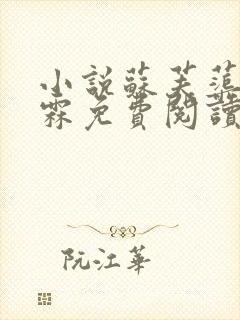 小說蘇芙蕖
霖免費閱讀
阮江華